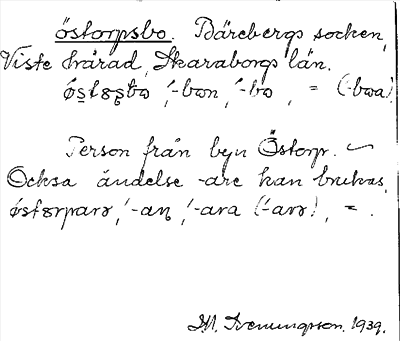 östorpsbo. Bärebergs socken,
Viste härad, Skaraborgs län.
ǿstorpsbo, ´-bon, ´-bo, = (´-boa).
Person från byn Östorp. ~
Också ändelse -are kan brukas,
ǿstorparə, ´-aṇ, ´-ara (´-arə), = .
1939.